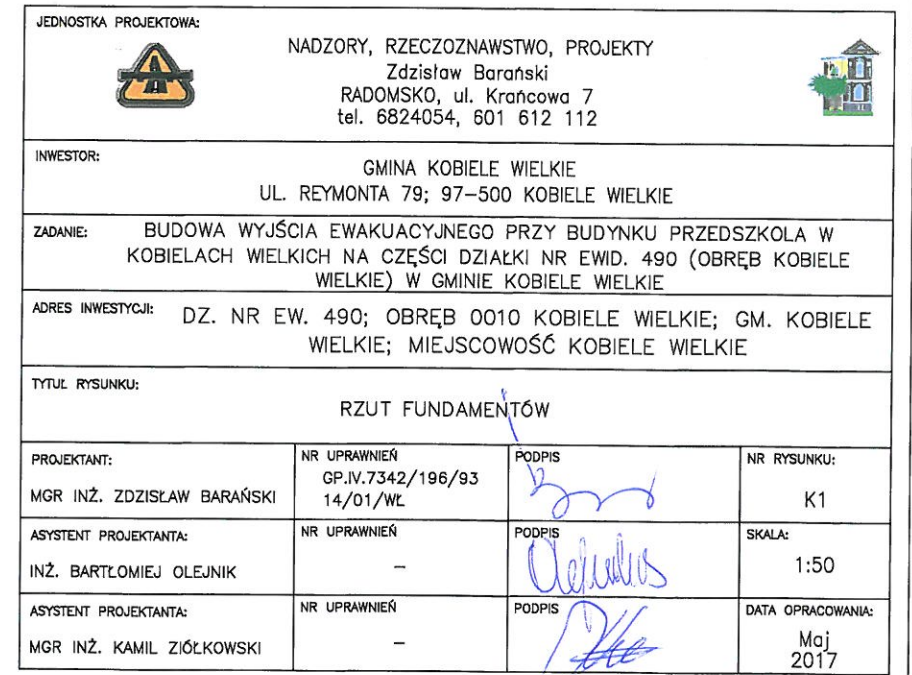 JEDNOSTKA PROJEKTOWA:
NADZORY, RZECZOZNAWSTWO, PROJEKTY
Zdzisław Barański
RADOMSKO, ul. Krańcowa 7
tel. 6824054, 601 612 112
INWESTOR:
GMINA KOBIELE WIELKIE
UL. REYMONTA 79; 97-500 KOBIELE WIELKIE
ZADANIE:
BUDOWA WYJŚCIA EWAKUACYJNEGO PRZY BUDYNKU PRZEDSZKOLA W
KOBIELACH WIELKICH NA CZĘŚCI DZIAŁKI NR EWID. 490 (OBRĘB KOBIELE
WIELKIE) W GMINIE KOBIELE WIELKIE
ADRES INWESTYCJI:
DZ. NR EW. 490; OBRĘB 0010 KOBIELE WIELKIE; GM. KOBIELE
WIELKIE; MIEJSCOWOŚĆ KOBIELE WIELKIE
TYTUŁ RYSUNKU:
RZUT FUNDAMENTÓW
PROJEKTANT:
MGR INŻ. ZDZISŁAW BARAŃSKI
NR UPRAWNIEŃ
GP.IV.7342/196/93
14/01/WŁ
PODPIS
NR RYSUNKU:
K1
ASYSTENT PROJEKTANTA:
INŻ. BARTŁOMIEJ OLEJNIK
NR UPRAWNIEŃ
–
PODPIS
SKALA:
1:50
ASYSTENT PROJEKTANTA:
MGR INŻ. KAMIL ZIÓŁKOWSKI
NR UPRAWNIEŃ
–
PODPIS
DATA OPRACOWANIA:
Maj
2017